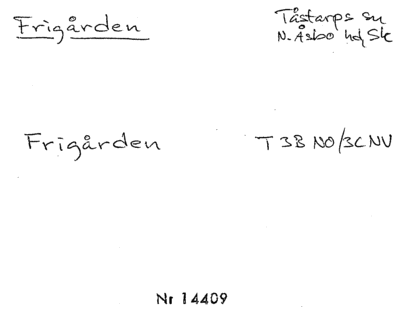 Frigården
Tåstarps sn
N. Åsbo hd Sk
Frigården
T 3B NO/3C NV
Nr 14409